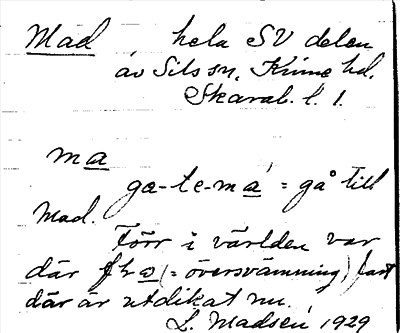 Mad hela SV delen
av Sils sn, Kinne hd,
Skarab. l. 1.
ma
ga-te-ma = gå till
Mad.
Förr i världen var
där (= översvämning) fast
där är utdikat nu.
L. Madsén 1929